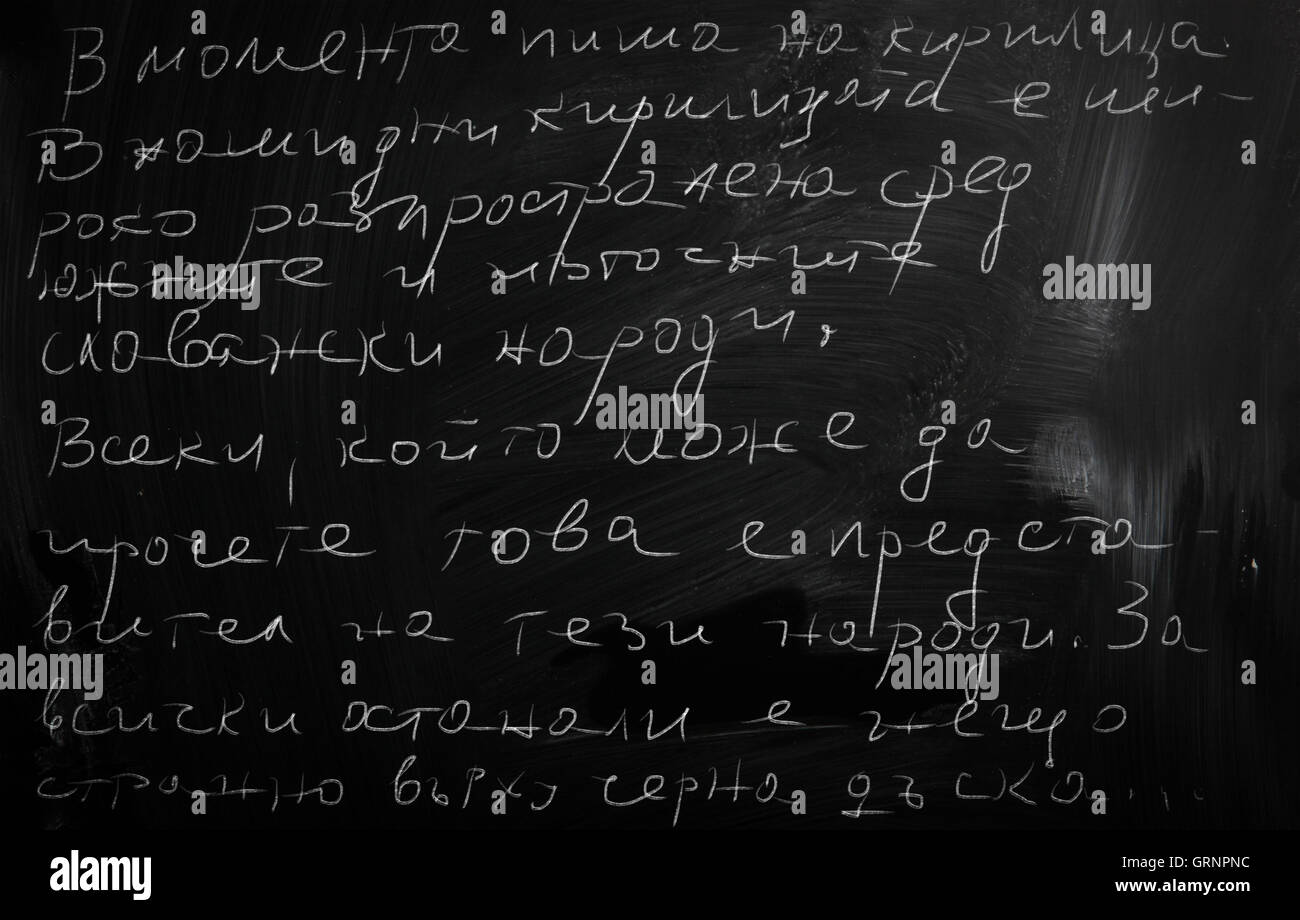 В момента пиша на кирилица.
В наши дни кирилицата е ши-
роко разпространена сред
южните и източните
славянски народи.
Всеки, който може да
прочете това е предста-
вител на тези народи. За
всички останали е нещо
странно върху черна дъска....
alamy stock photo
GRNPNC
www.alamy.com